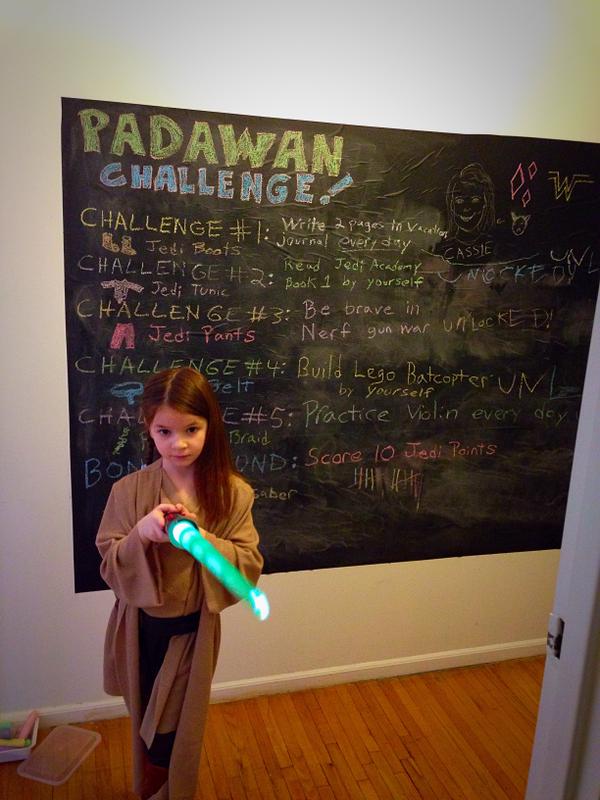 PADAWAN
CHALLENGE!
CHALLENGE #1: Write 2 pages in Vacation
Jedi Boots Journal every day
CASSIE
CHALLENGE #2: Read Jedi Academy UNLOCKED! UNL
Jedi Tunic Book 1 by yourself
CHALLENGE #3: Be brave in
Jedi Pants Nerf gun war UNLOCKED!
CHALLENGE #4: Build Lego Batcopter UNL
Belt by yourself
CHA E #5: Practice Violin every day
Braid
BON UND: Score 10 Jedi Points
saber